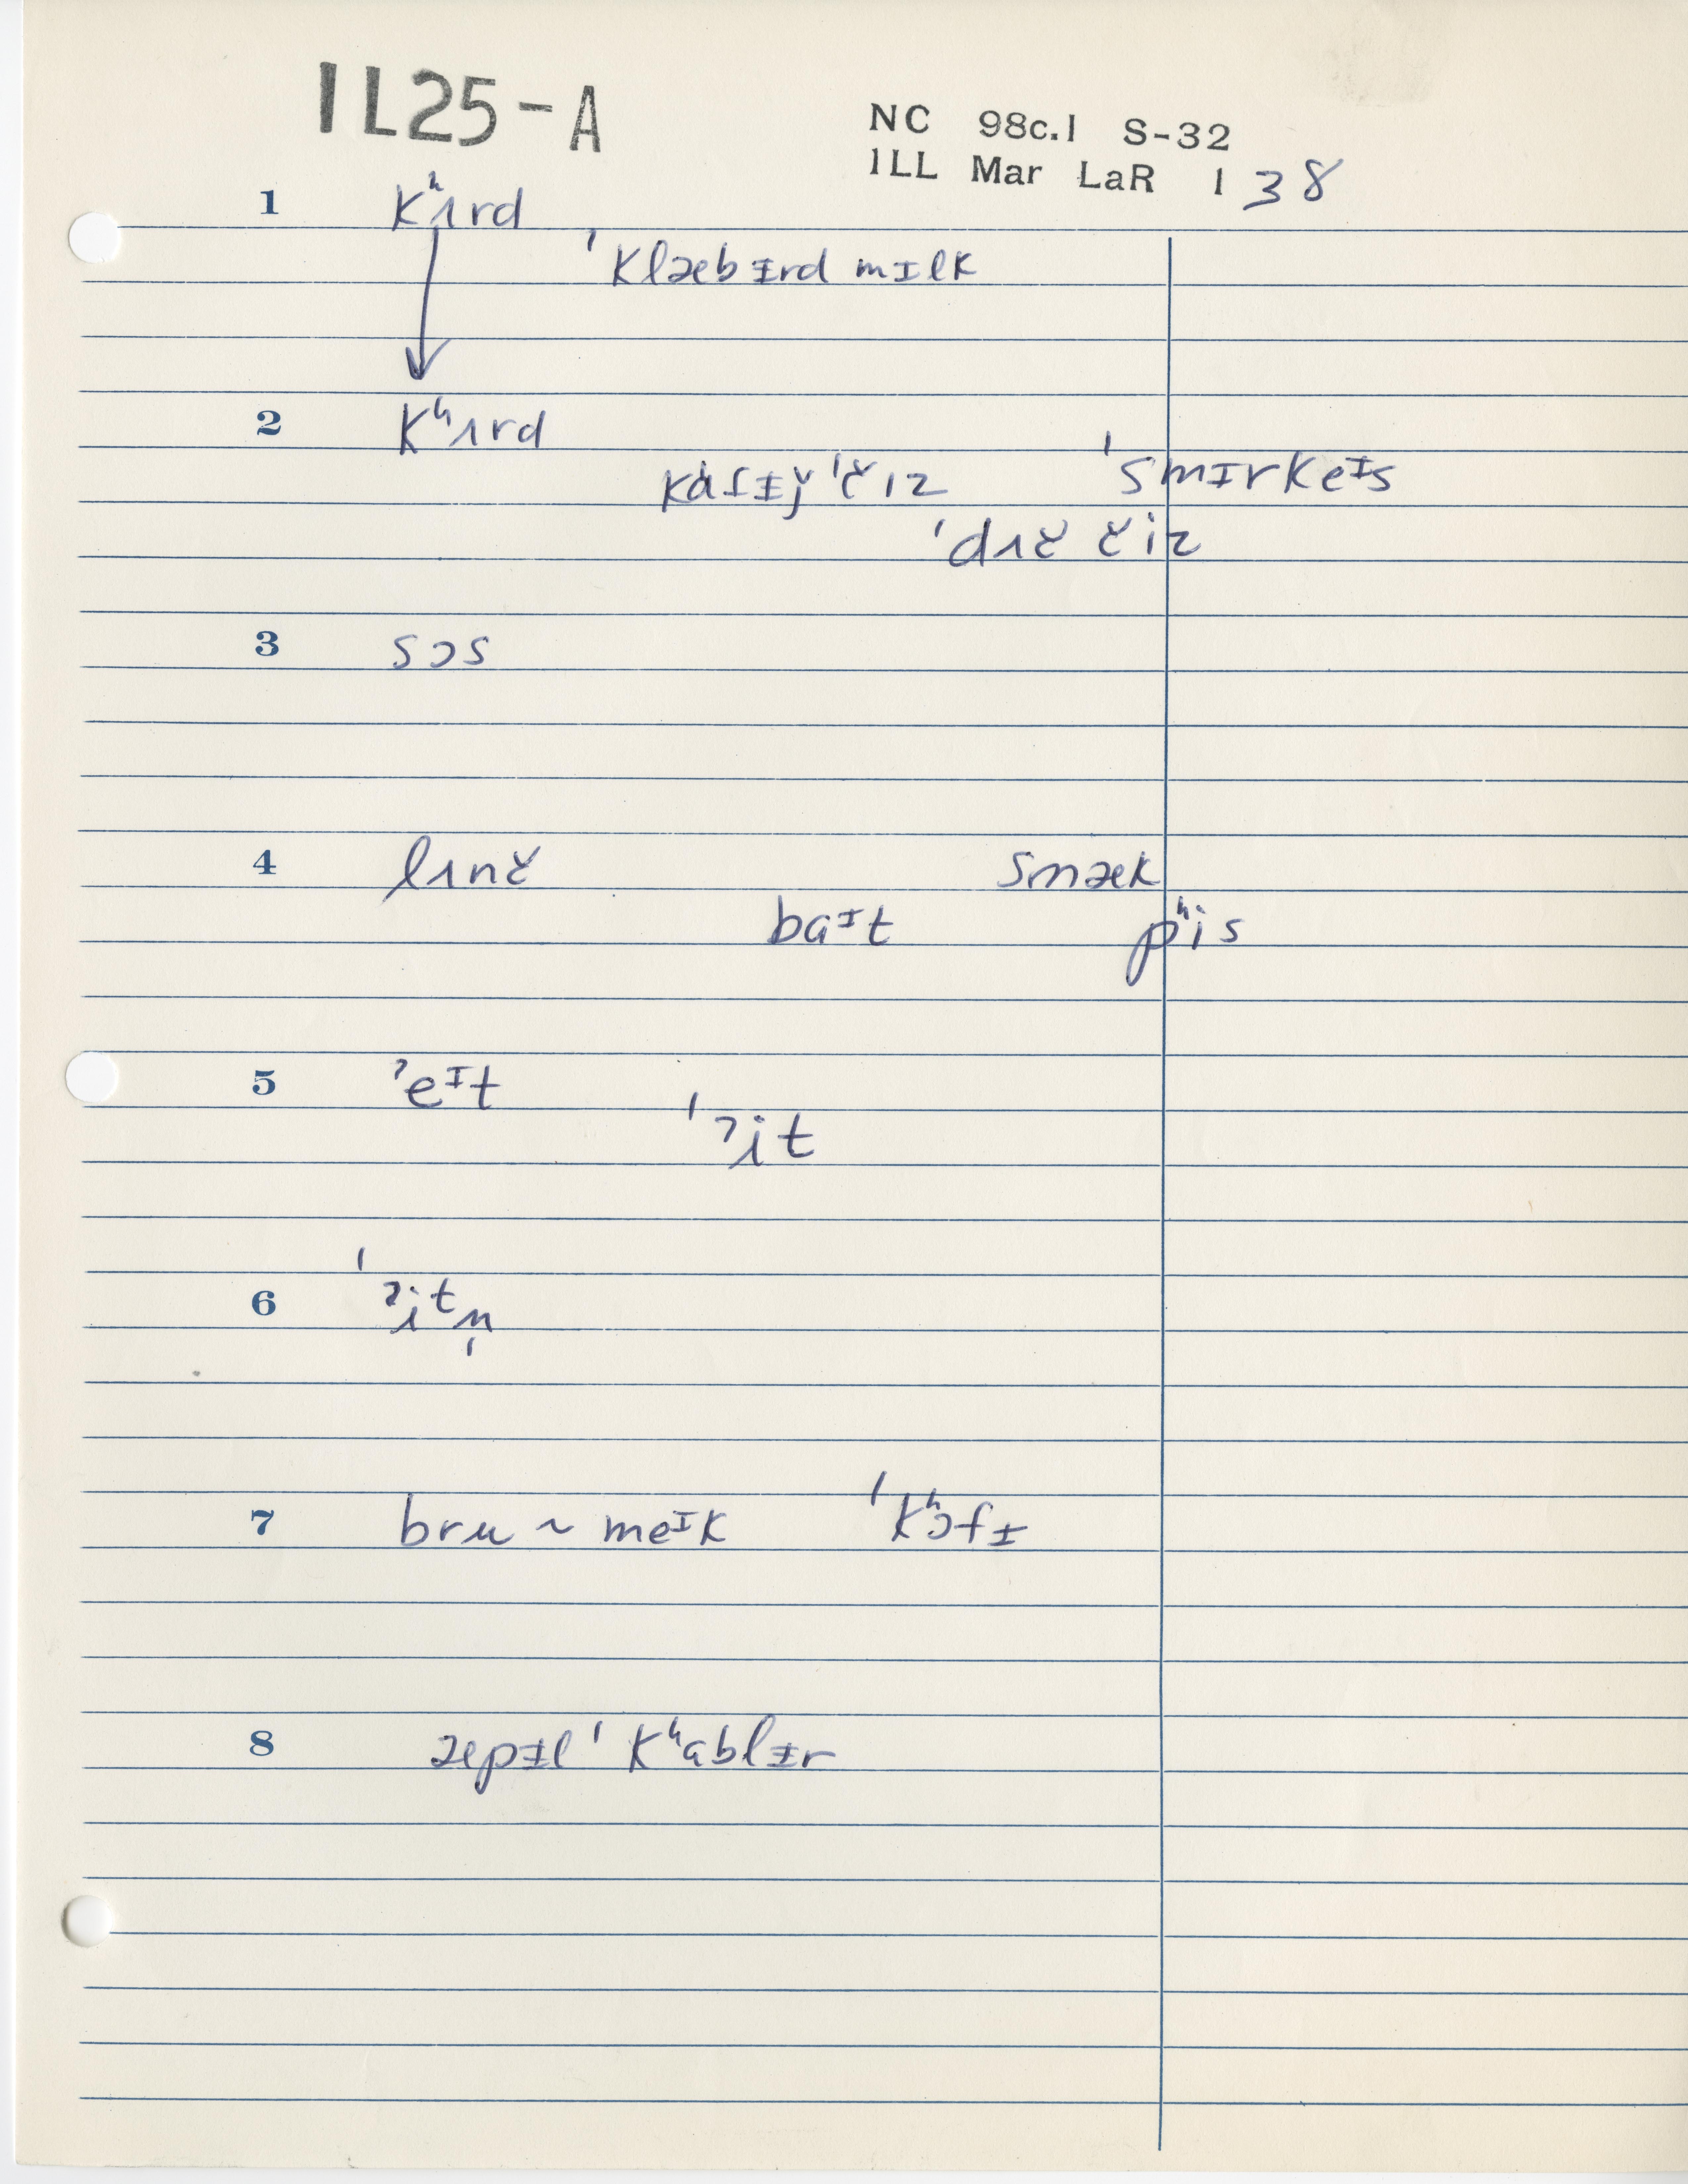 1L25-A
NC 98c.1 S-32
ILL Mar LaR 1 38
1 kʰɪrd
ˈklæbɨrd mɪlk
2 kʰʌrd
ˈsmɪrkeᶦs
ˈdʌč čiz
3 sɔs
4 lʌnč smæk
baᶦt pʰis
5 ˀeᶦt
ˈˀit
6 ˈˀitn̩
7 bru ~ meᶦk ˈkʰɔfɨ
8 æpɨl ˈkʰablɨr